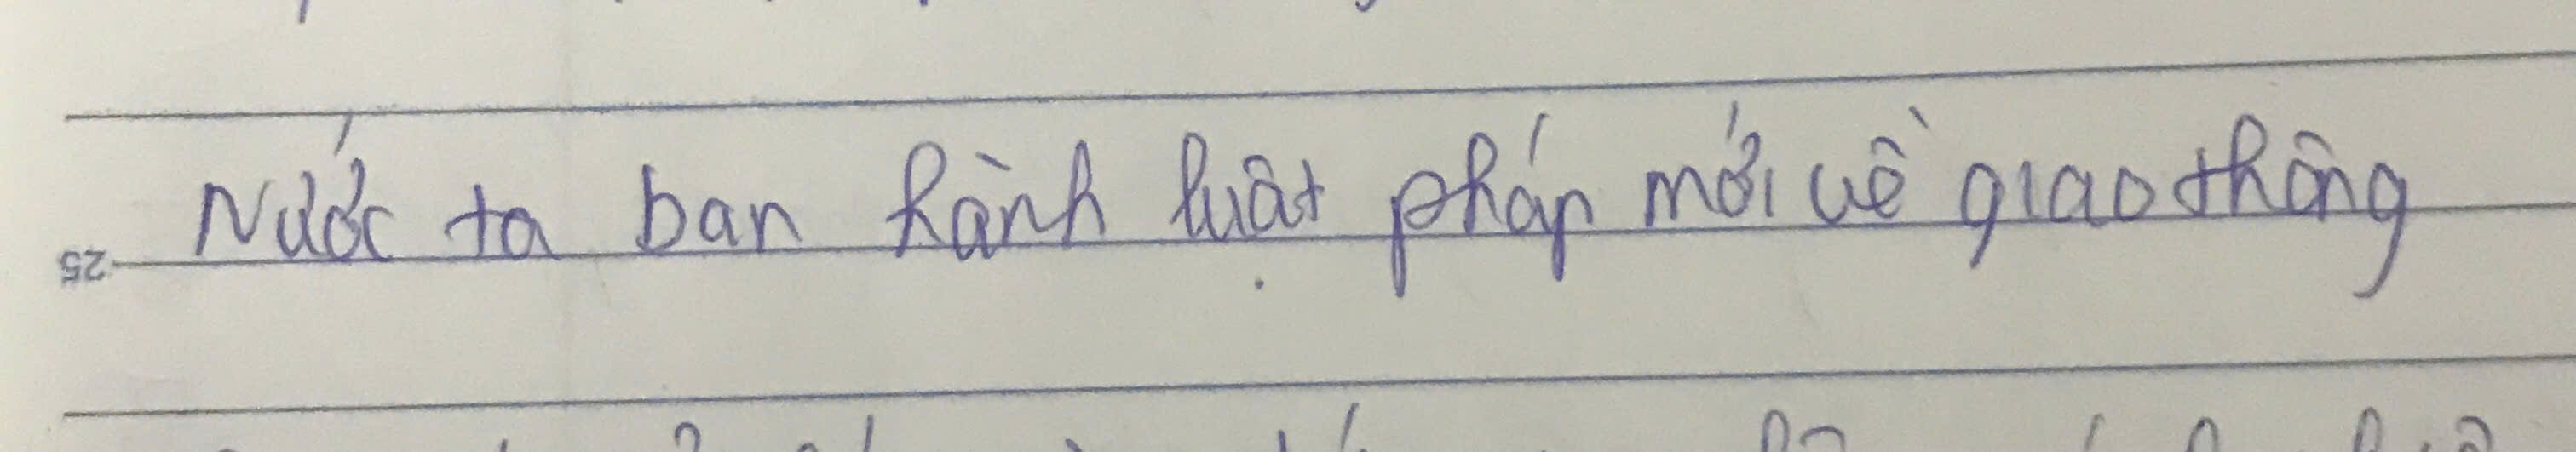 Nước ta ban hành luật pháp mới về giao thông
25